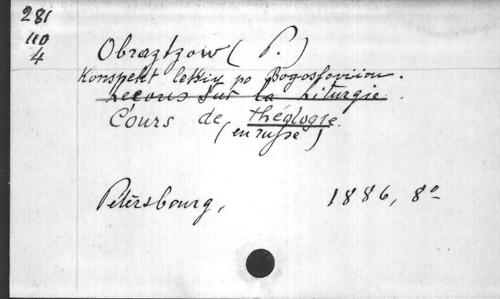 281
110
4
Obraztzow (P.)
Konspekt lektziy po Bogosloviiou.
Leçons sur la Liturgie.
Cours de théologie.
(en russe)
Pétersbourg, 1886, 8º